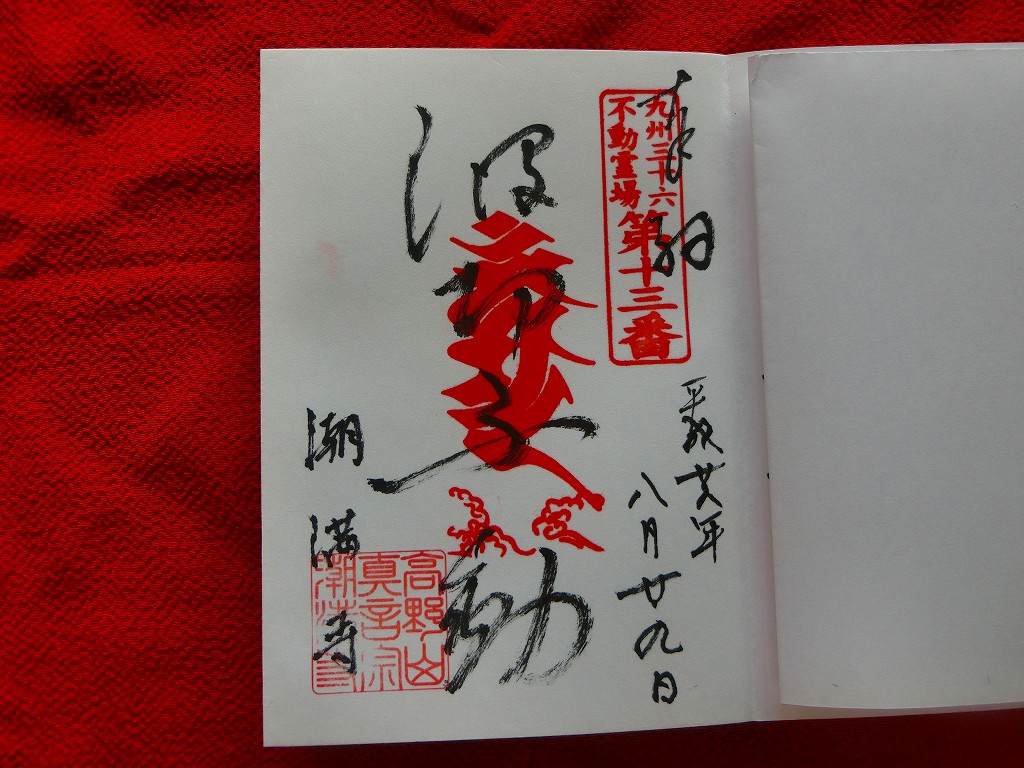 奉拝
九州三十六
不動霊場
第十三番
平成廿六年
八月廿九日
波切不動
潮満寺
高野山
真言宗
潮満寺